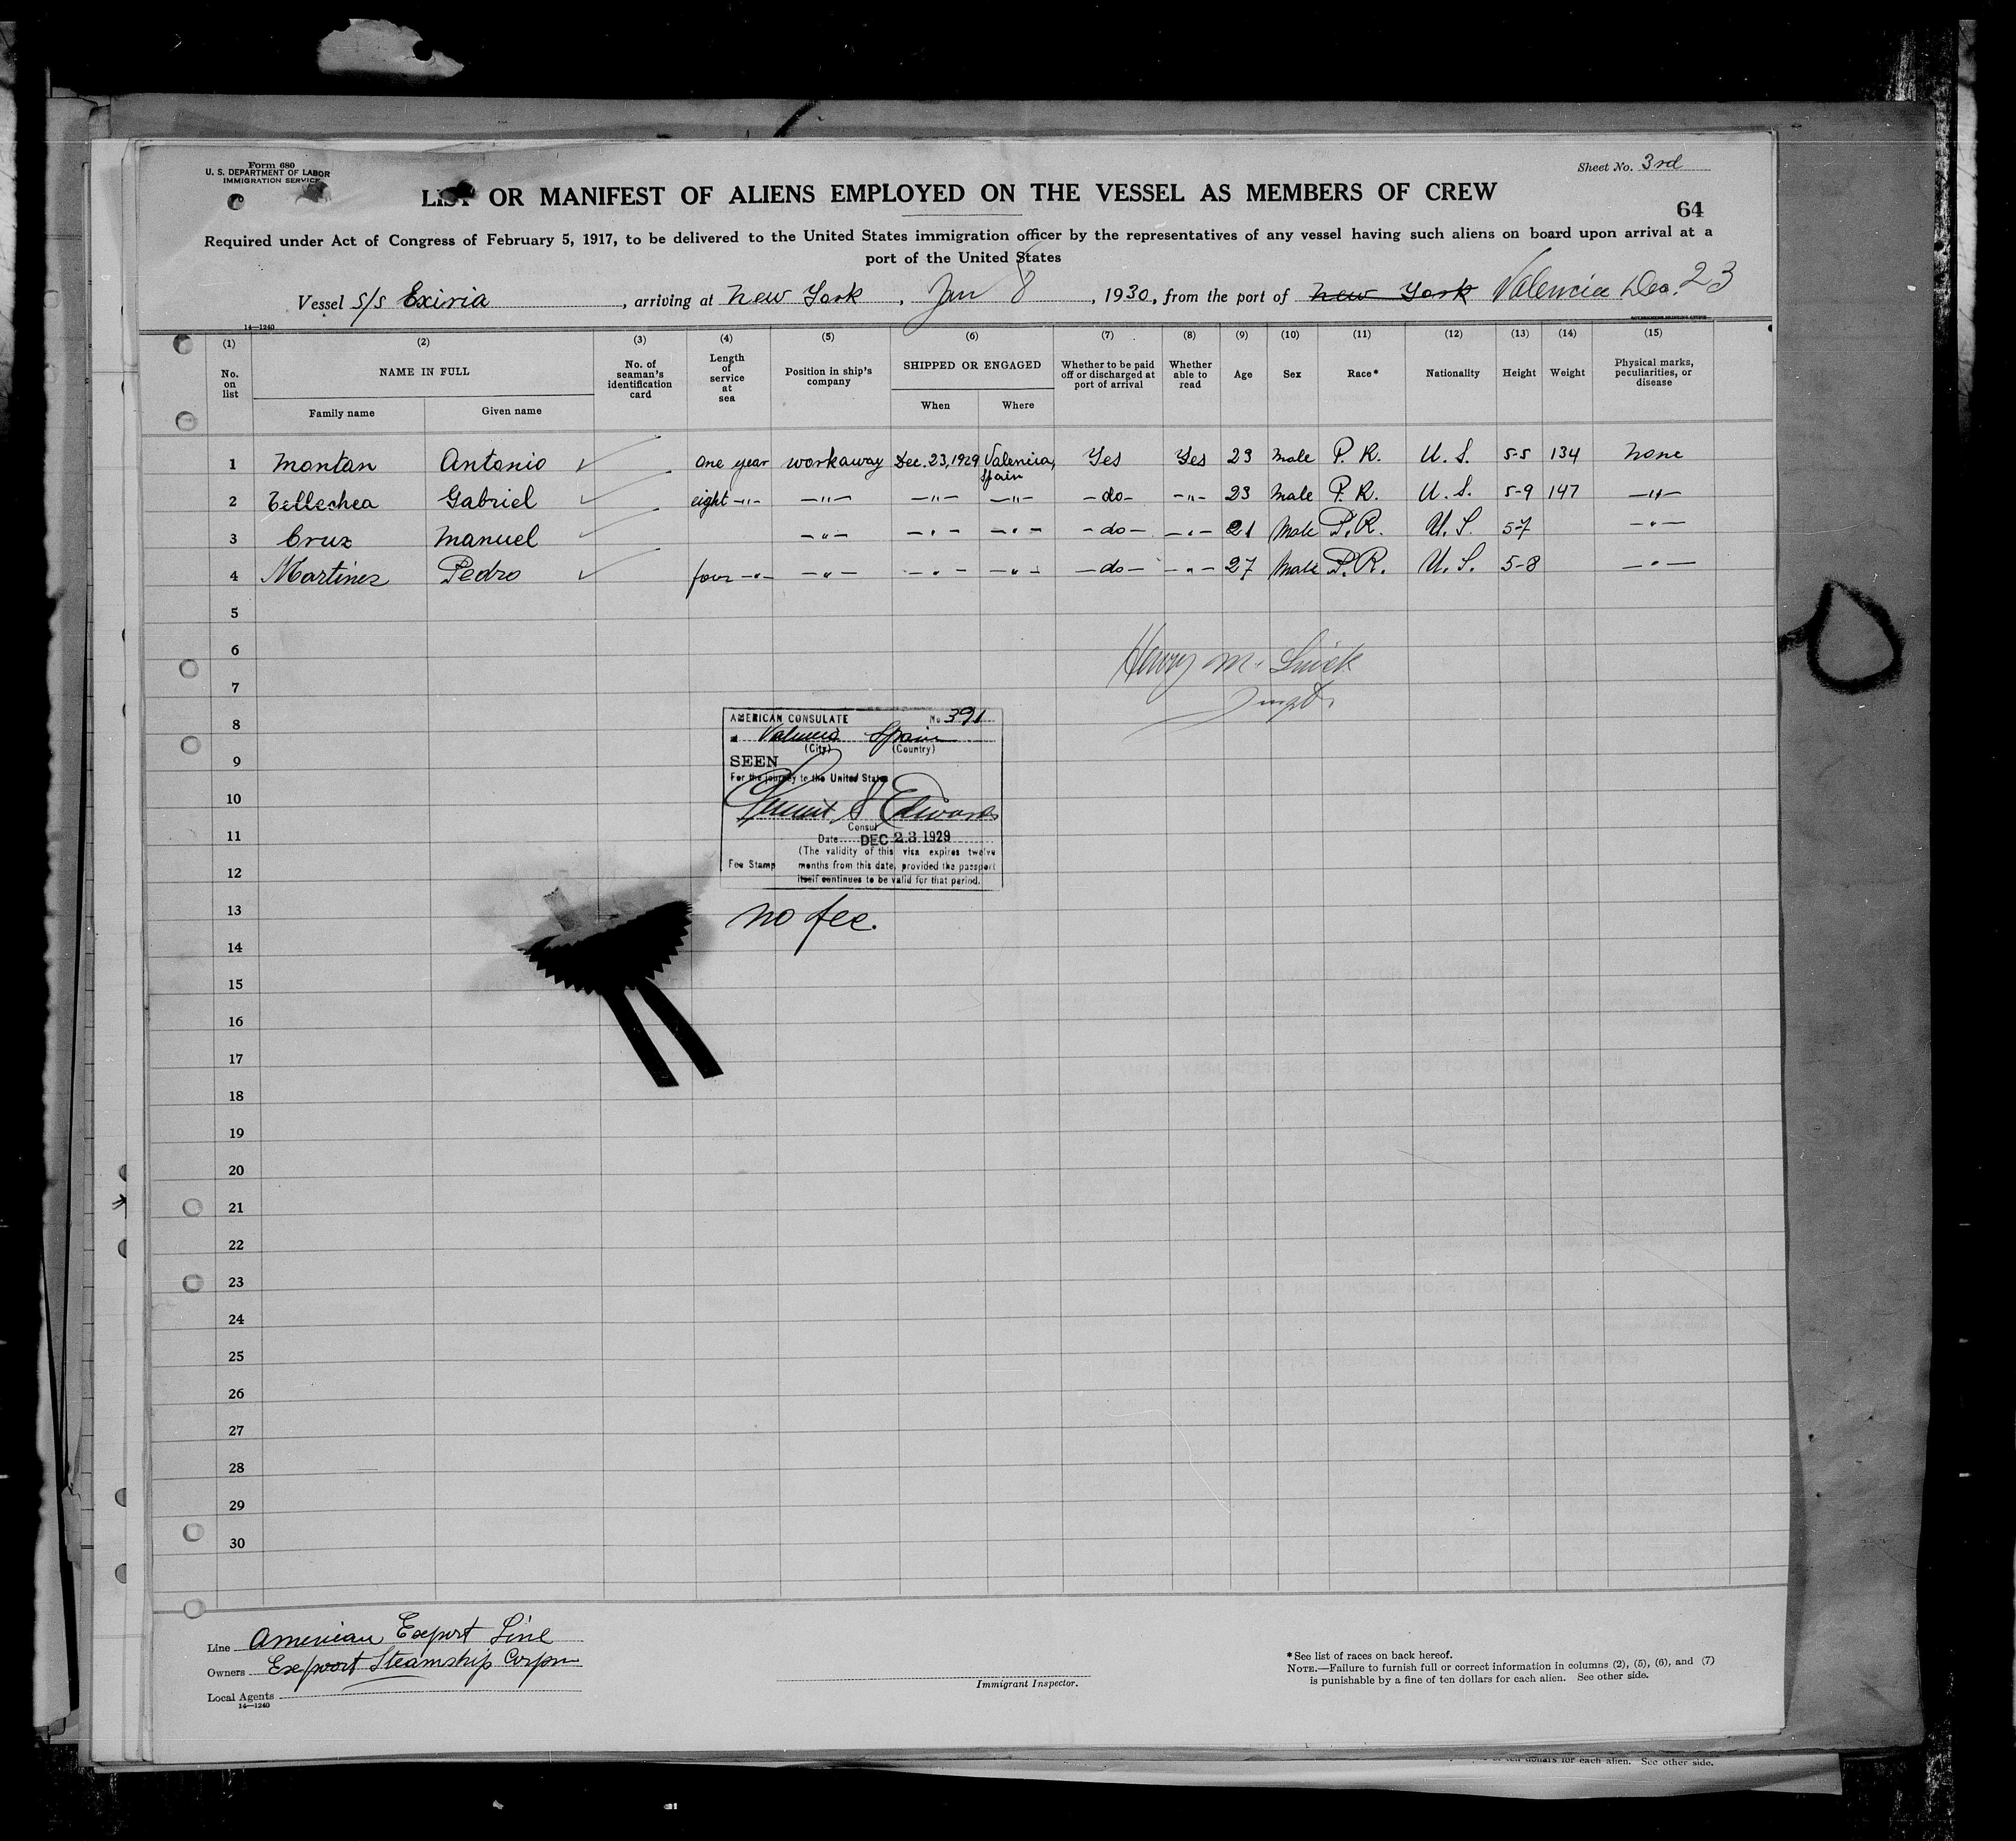 Form 680
U. S. DEPARTMENT OF LABOR
IMMIGRATION SERVICE
Sheet No. 3rd
LIST OR MANIFEST OF ALIENS EMPLOYED ON THE VESSEL AS MEMBERS OF CREW
64
Required under Act of Congress of February 5, 1917, to be delivered to the United States immigration officer by the representatives of any vessel having such aliens on board upon arrival at a
port of the United States
Vessel s/s Exiria, arriving at New York, Jan 8, 1930, from the port of New York Valencia Dec. 23
14—1240
(1) (2) (3) (4) (5) (6) (7) (8) (9) (10) (11) (12) (13) (14) (15)
No. on list NAME IN FULL No. of seaman's identification card Length of service at sea Position in ship's company SHIPPED OR ENGAGED Whether to be paid off or discharged at port of arrival Whether able to read Age Sex Race* Nationality Height Weight Physical marks, peculiarities, or disease
Family name Given name When Where
1 Montan Antonio ✓ one year workaway Dec. 23, 1929 Valencia, Spain Yes Yes 23 Male P. R. U. S. 5-5 134 None
2 Tellechea Gabriel ✓ eight -"- -"- -"- -"- -do- -"- 23 Male P. R. U. S. 5-9 147 -"-
3 Cruz Manuel ✓ -"- -"- -"- -do- -"- 21 Male P. R. U. S. 5-7 -"-
4 Martinez Pedro ✓ four -"- -"- -"- -"- -do- -"- 27 Male P. R. U. S. 5-8 -"-
5
6
Henry M.
7
8
9
10
11
12
13
14
15
16
17
18
19
20
21
22
23
24
25
26
27
28
29
30
AMERICAN CONSULATE No 391
Valencia Spain
(City) (Country)
SEEN
For the journey to the United States
Edwards
Consul
Date DEC 23 1929
(The validity of this visa expires twelve
Fee Stamp months from this date, provided the passport
itself continues to be valid for that period.
no fee.
Line American Export Line
Owners Export Steamship Corpn
Local Agents
14—1240
Immigrant Inspector.
*See list of races on back hereof.
NOTE.—Failure to furnish full or correct information in columns (2), (5), (6), and (7)
is punishable by a fine of ten dollars for each alien. See other side.
ten dollars for each alien. See other side.